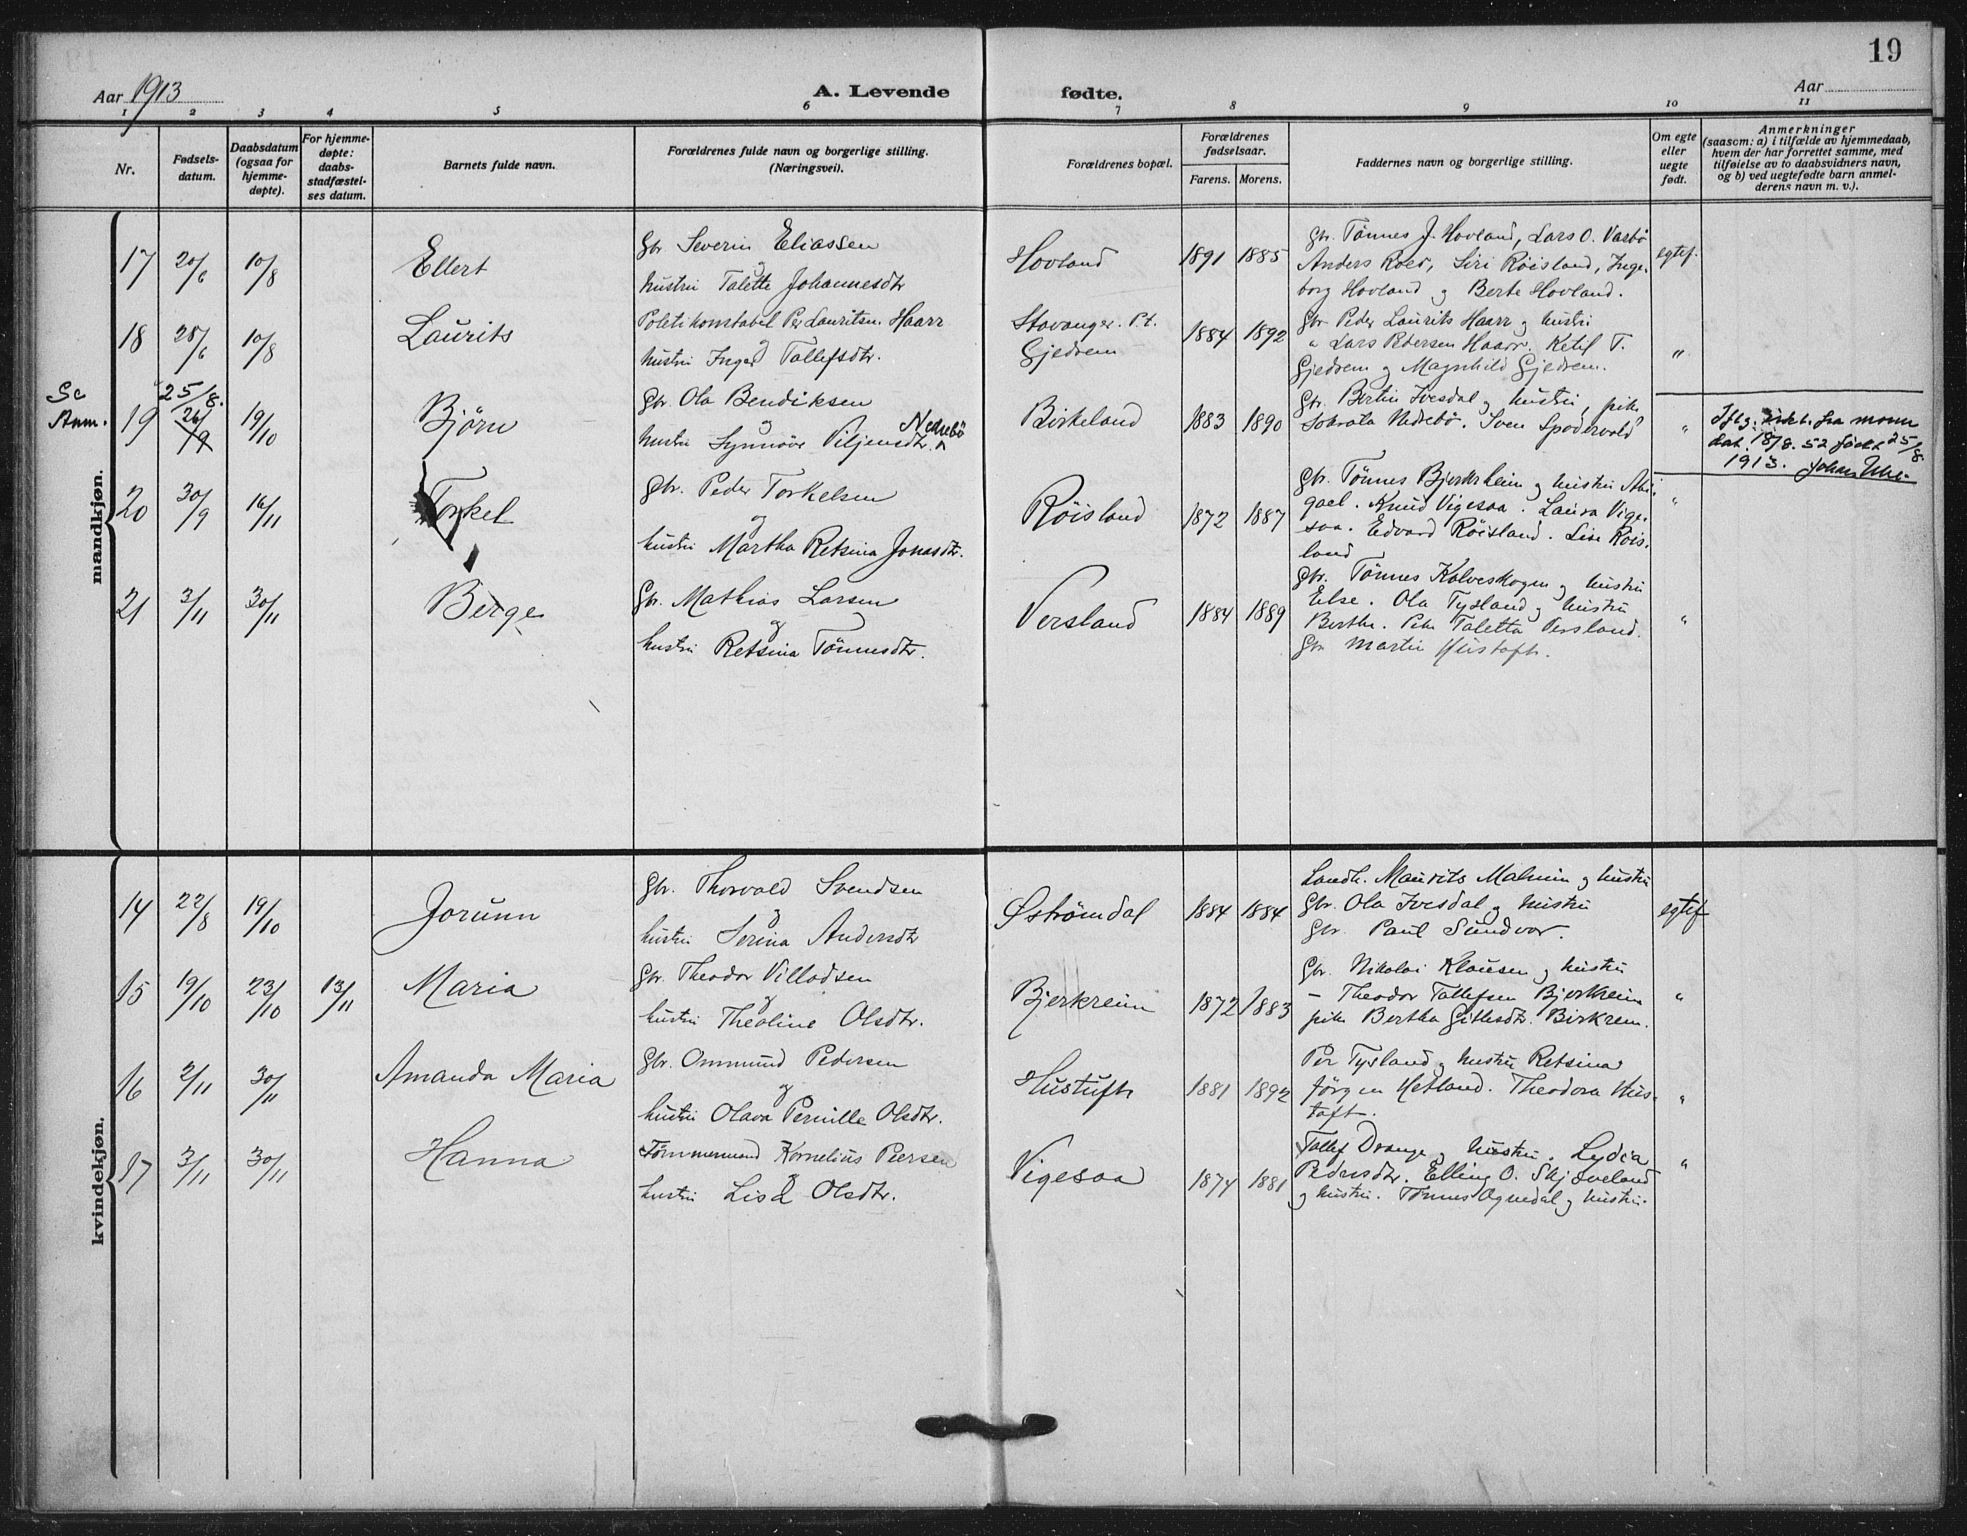 19
Aar 1913
A. Levende fødte.
Aar
1 2 3 4 5 6 7 8 9 10 11
Nr.
Fødsels-
datum.
Daabsdatum
(ogsaa for
hjemme-
døpte).
For hjemme-
døpte:
daabs-
stadfæstel-
ses datum.
Barnets fulde navn.
Forældrenes fulde navn og borgerlige stilling.
(Næringsvei).
Forældrenes bopæl.
Forældrenes
fødselsaar.
Farens. Morens.
Faddernes navn og borgerlige stilling.
Om egte
eller
uegte
født.
Anmerkninger
(saasom: a) i tilfælde av hjemmedaab,
hvem der har forrettet samme, med
tilføielse av to daabsvidners navn,
og b) ved uegtefødte barn anmel-
derens navn m. v.).
mandkjøn.
17 20/6 10/8 Ellert
Gbr. Severin Eliassen
og
hustru Talette Johannesdtr
Hovland 1891 1885
Gbr. Tønnes J. Hovland, Lars O. Varbø
Anders Roed, Siri Røisland, Inge-
borg Hovland og Berte Hovland.
egtef.
18 28/6 10/8 Laurits
Politikonstabel Per Lauritsen Haarr
og
hustru Inger Tollefsdtr.
Stavanger. P.t.
Gjedrem
1884 1892
Gbr Peder Laurits Haarr og hustru
" Lars Pedersen Haarr. Ketil T.
Gjedrem og Magnhild Gjedrem.
"
Se
Anm.
19 25/8. 26/9 19/10 Bjørn
Gbr. Ola Bendiksen
og Nedrebø
hustru Synnøve Viljemsdtr.
Birkeland 1883 1890
Gbr. Bertin Ivesdal og hustru, pike
Sokrata Nedrebø. Sven Spødervold
"
Iflg. fra moren
dat. 18/8. 52 født 25/8
1913.
20 30/9 16/11 Torkel
Gbr. Peder Torkelsen
og
hustru Martha Retsina Jonasdtr.
Røisland 1872 1887
Gbr. Tønnes Bjerkreim og hustru Abi-
gael. Knud Vigesaa. Laura Vige-
saa. Edvard Røisland. Lise Røis-
land
"
21 3/11 30/11 Berge
Gbr. Mathias Larsen
og
hustru Retsina Tønnesdtr.
Versland 1884 1889
Gbr. Tønnes Kalveskogen og hustru
Else. Ola Tysland og hustru
Berthe. Pike Taletta Versland.
Gbr Martin Hustoft.
"
kvindekjøn.
14 22/8 19/10 Jorunn
Gbr. Thorvald Svendsen
og
hustru Serina Andersdtr
Østrømdal 1884 1884
Landh. Maurits Malmin og hustru
Gbr. Ola Ivesdal og hustru
Gbr. Paul Sundvor.
egtef
15 19/10 23/10 13/11 Maria
Gbr. Theodor Villadsen
og
hustru Theoline Olsdtr.
Bjerkreim 1872 1883
Gbr. Nikolai Klausen og hustru
– Theodor Tollefsen Bjerkreim
pike Bertha Gitlesdtr. Birkrem.
"
16 2/11 30/11 Amanda Maria
Gbr. Ommund Pedersen
og
hustru Olava Pernille Olsdtr.
Hustuft 1881 1892
Per Tysland og hustru Retsina
Jørgen Hetland. Theodora Hus-
toft.
"
17 3/11 30/11 Hanna
Tømmermand Kornelius Peersen
og
hustru Lisa Olsdtr.
Vigesaa 1874 1881
Tollef Drange og hustru. Lydia
Pedersdtr. Elling O. Skjæveland
og hustru. Tønnes Ognedal og hustru.
"